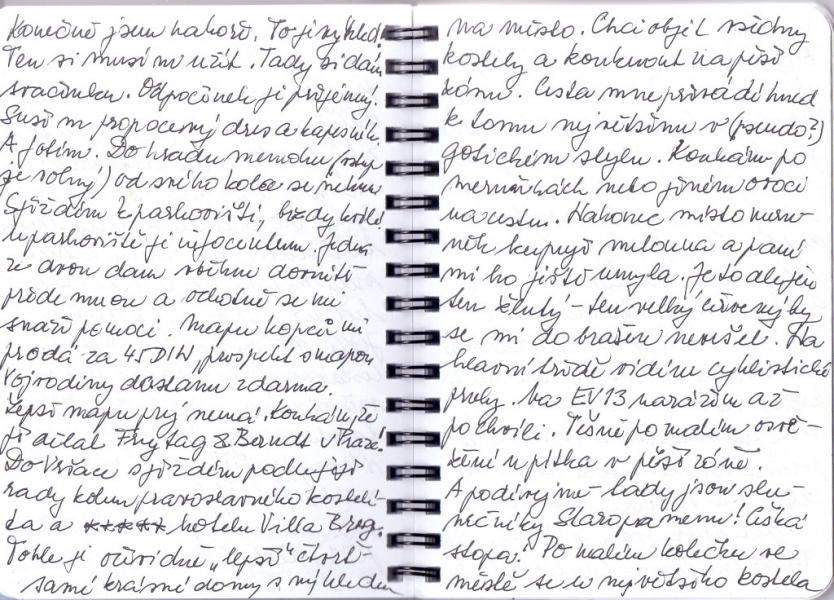 Konečně jsem nahoře. To je výhled!
Ten si musím užít. Tady si dám
svačinku. Odpočinek je příjemný!
Suším propocený dres a kapesník.
A fotím. Do hradu nemohu (vstup
je volný) od svého kola se nehnu
Sjíždím k parkovišti, budy kolem
u parkoviště je infocentrum. Jedna
ze dvou dam všeho dovnitř
přede mnou a ochotně se mi
snaží pomoci. Mapu kopců mi
prodá za 45 DIN, prospekt s mapou
Vojvodiny dostanu zdarma.
Lepší mapu prý nemá! Koukám, že
ji dělal Freytag & Berndt v Praze!
Do Vršace sjíždím podle její
rady kolem pravoslavného kostelí-
ka a hotelu Villa Breg.
Tohle je očividně „lepší“ čtvrť-
samé krásné domy s výhledem
na město. Chci objet všechny
kostely a kouknout na pěší
zónu. Cesta mne přivádí hned
k tomu největšímu v (pseudo?)
gotickém stylu. Koukám po
meruňkách nebo jiném ovoci
na cestu. Nakonec místo meru-
něk kupuji melouna a paní
mi ho ještě umyla. Je to ale jen
ten žlutý - ten velký červený by
se mi do brašen nevešel. Na
hlavní třídě vidím cyklistické
pruhy. Na EV13 narážím až
po chvíli. Těšně po malém osvě-
žení u pítka v pěší zóně.
A podívejme - tady jsou slu-
nečníky Staropramenu! Česká
stopa! Po malém kolečku ve
městě se u největšího kostela